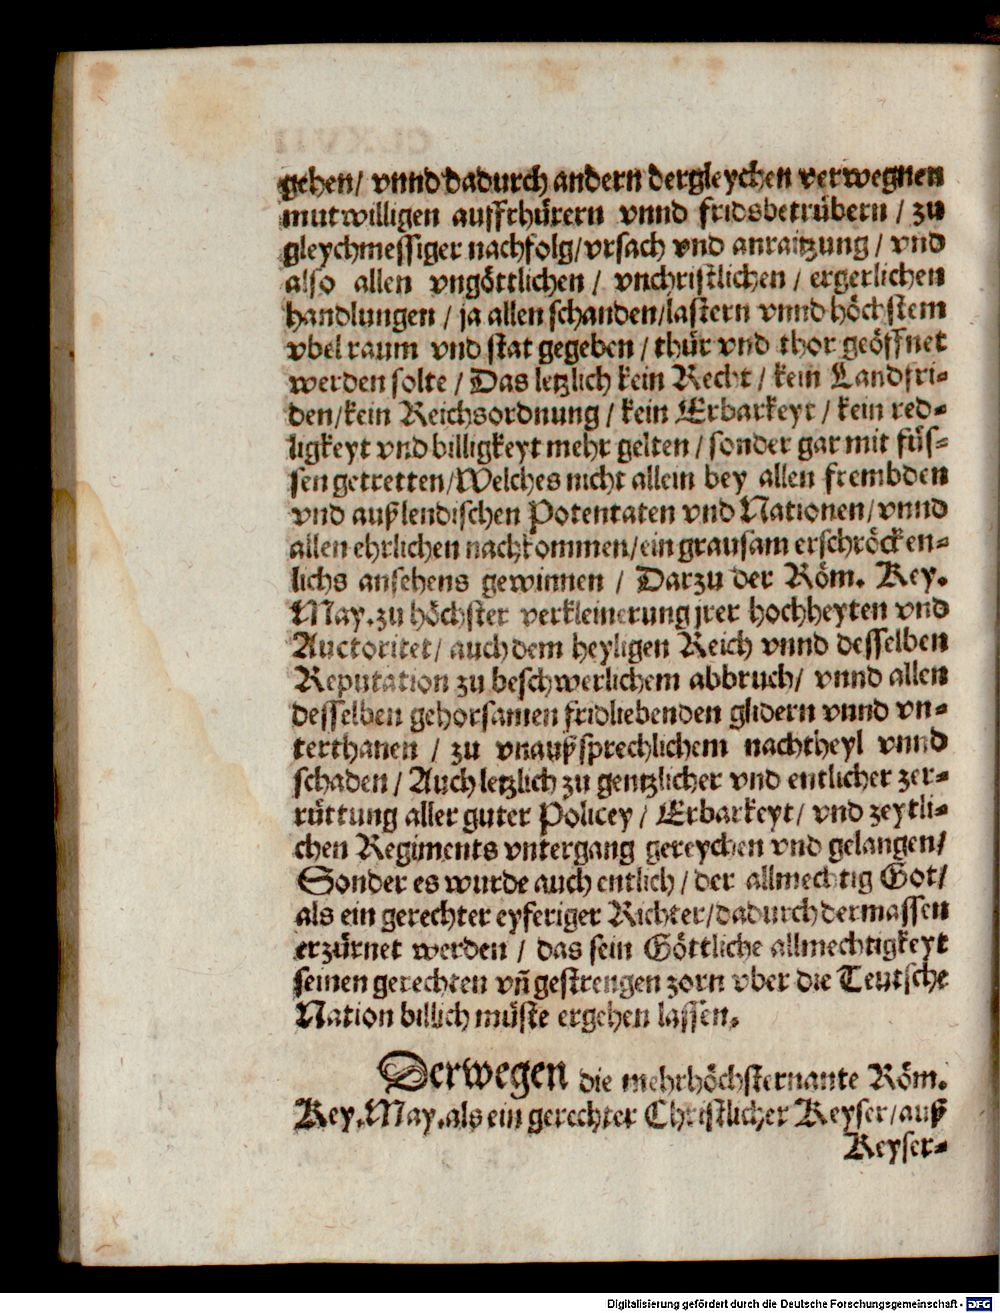 gehen/ vnnd dadurch andern dergleychen verwegnen
mutwilligen auffrhürern vnnd fridsbetrübern / zu
gleychmessiger nachfolg/vrsach vnd anraitzung / vnd
also allen vngöttlichen / vnchristlichen / ergerlichen
handlungen / ja allen schanden/lastern vnnd höchstem
vbel raum vnd stat gegeben / thür vnd thor geöffnet
werden solte / Das letzlich kein Recht / kein Landfri-
den/kein Reichsordnung / kein Erbarkeyt / kein red-
ligkeyt vnd billigkeyt mehr gelten / sonder gar mit füs-
sen getretten/Welches nicht allein bey allen frembden
vnd außlendischen Potentaten vnd Nationen/vnnd
allen ehrlichen nachkommen/ein grausam erschröcken-
lichs ansehens gewinnen / Darzu der Röm. Key.
May.zu höchster verkleinerung jrer hochheyten vnd
Auctoritet/ auch dem heyligen Reich vnnd desselben
Reputation zu beschwerlichem abbruch/ vnnd allen
desselben gehorsamen fridliebenden glidern vnnd vn-
terthanen / zu vnaußsprechlichem nachtheyl vnnd
schaden / Auch letzlich zu gentzlicher vnd entlicher zer-
rüttung aller guter Policey / Erbarkeyt/ vnd zeytli-
chen Regiments vntergang gereychen vnd gelangen/
Sonder es wurde auch entlich / der allmechtig Got/
als ein gerechter eyferiger Richter/dadurch dermassen
erzürnet werden / das sein Göttliche allmechtigkeyt
seinen gerechten vn̄ gestrengen zorn vber die Teutsche
Nation billich müste ergehen lassen.
Derwegen die mehrhöchsternante Röm.
Key.May.als ein gerechter Christlicher Keyser/auß
Keyser-
Digitalisierung gefördert durch die Deutsche Forschungsgemeinschaft - DFG